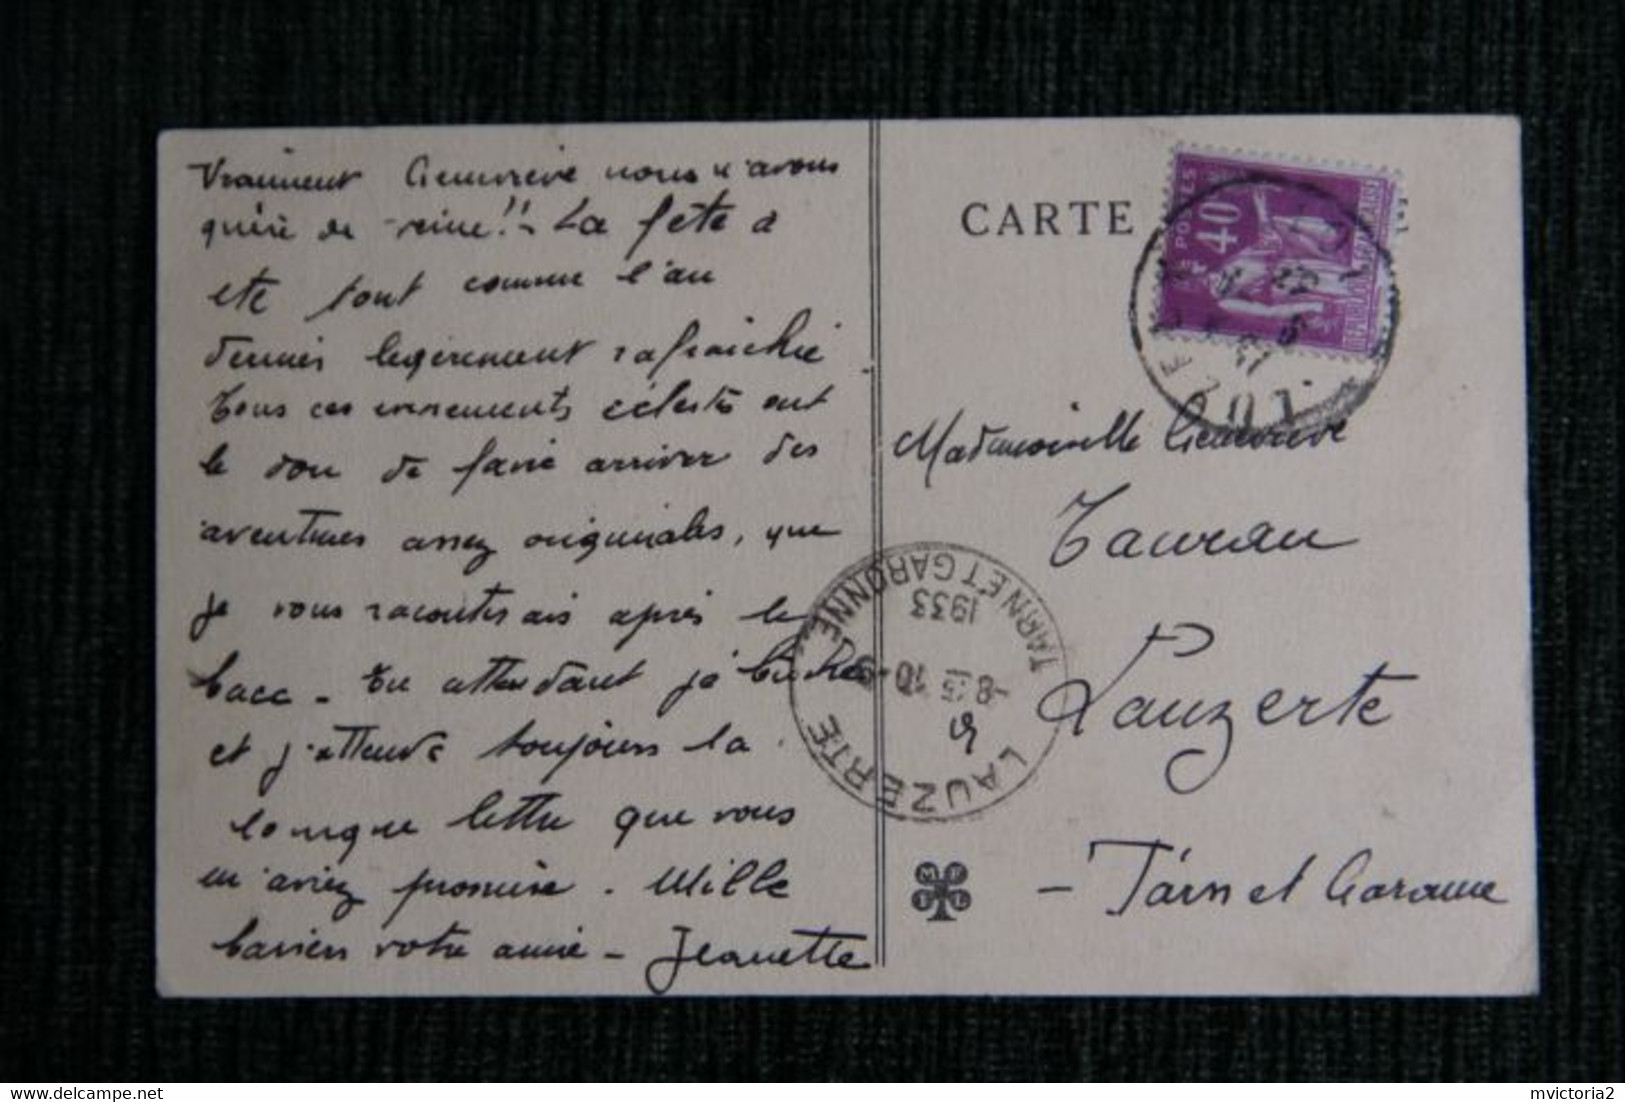 Vraiment Geneviève nous n'avons
guère de veine!! - La fête a
été tout comme l'an
dernier légèrement rafraîchie
Tous ces évènements célestes ont
le don de faire arriver des
aventures assez originales, que
je vous raconterais après le
bacc - En attendant je bûche
et j'attends toujours la
longue lettre que vous
m'aviez promise. Mille
baisers votre amie - Jeanette
CARTE
POSTES
40
REPUBLIQUE FRANÇAISE
Mademoiselle Geneviève
Taureau
Lauzerte
- Tarn et Garonne
LAUZERTE
TARN ET GARONNE
8 15
10-5
1933
mvictoria2